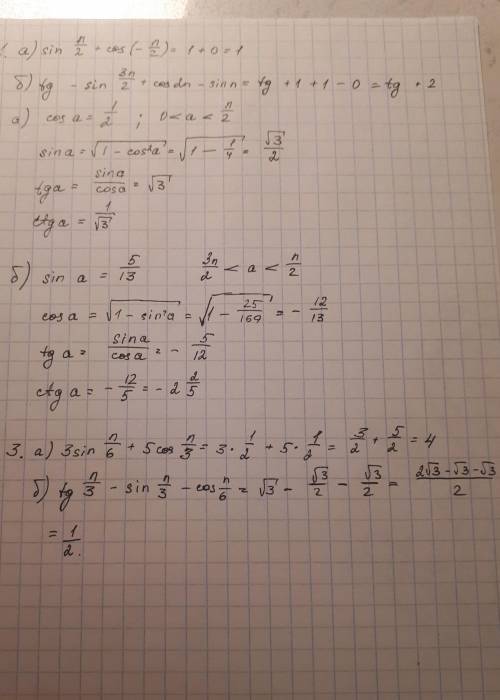 1. а) sin п/2 + cos(-п/2) = 1 + 0 = 1
б) tg - sin 3п/2 + cos2п - sinп = tg + 1 + 1 - 0 = tg + 2
а) cos a = 1/2 ; 0 < a < п/2
sin a = √(1 - cos²a) = √(1 - 1/4) = √3/2
tg a = sin a/cos a = √3
ctg a = 1/√3
б) sin a = 5/13 3п/2 < a < п/2
cos a = √(1 - sin²a) = √(1 - 25/169) = - 12/13
tg a = sin a/cos a = - 5/12
ctg a = - 12/5 = - 2 2/5
3. а) 3sin п/6 + 5cos п/3 = 3 · 1/2 + 5 · 1/2 = 3/2 + 5/2 = 4
б) tg п/3 - sin п/3 - cos п/6 = √3 - √3/2 - √3/2 = (2√3 - √3 - √3)/2
= 1/2.